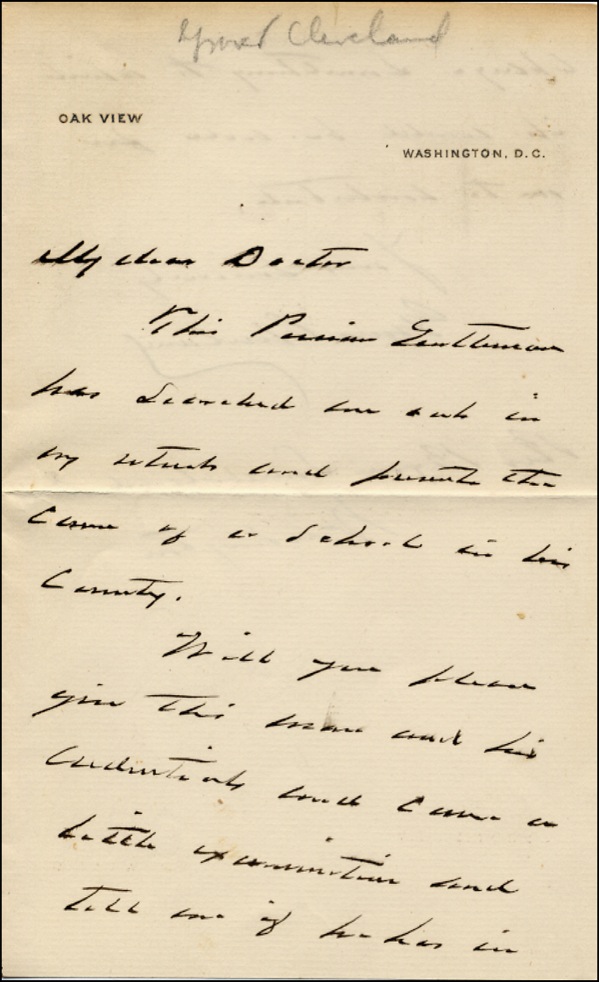 Grover Cleveland
OAK VIEW
WASHINGTON, D.C.
My dear Doctor
This Persian Gentleman
has searched me out in
my retreat and presents the
cause of a School in his
County.
Will you please
give this man and his
credentials and cause a
little examination and
tell me if he has in